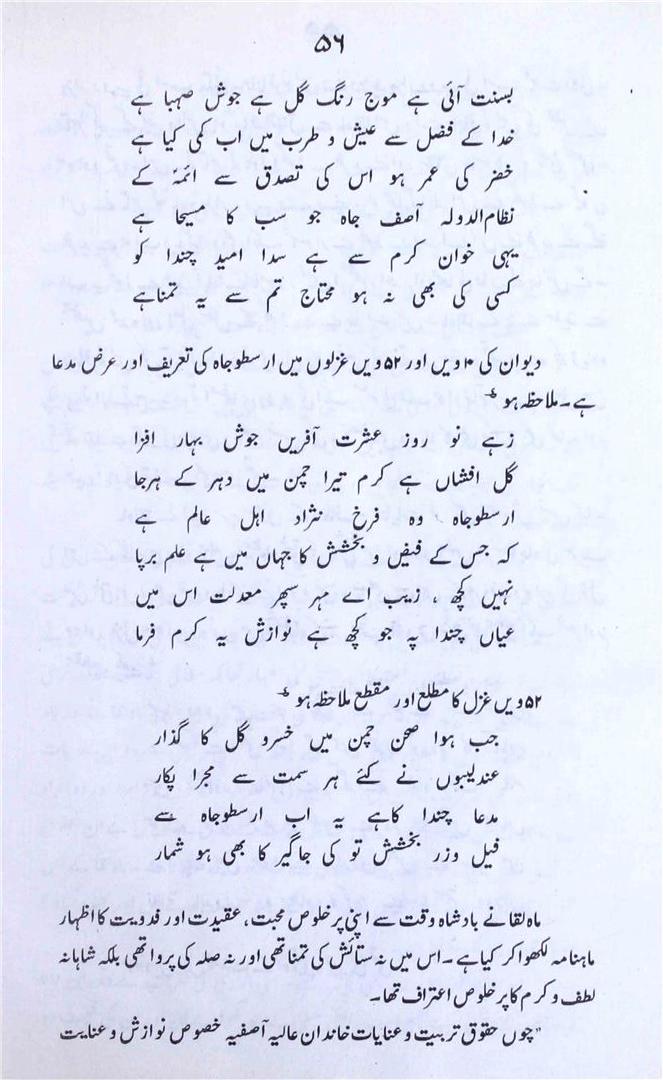 ۵۶
بسنت آئی ہے موج رنگ گل ہے جوش صہبا ہے
خدا کے فضل سے عیش و طرب میں اب کمی کیا ہے
خضر کی عمر ہو اس کی تصدق سے ائمہ کے
نظام الدولہ آصف جاہ جو سب کا مسیحا ہے
یہی خوان کرم سے ہے سدا امید چندا کو
کسی کی بھی نہ ہو محتاج تم سے یہ تمنا ہے
دیوان کی ۱۰ ویں اور ۵۲ ویں غزلوں میں ارسطوجاہ کی تعریف اور عرض مدعا
ہے۔ ملاحظہ ہو
زہے نو روز عشرت آفریں جوش بہار افزا
گل افشاں ہے کرم تیرا چمن میں دہر کے ہرجا
ارسطوجاہ وہ فرخ نژاد اہل عالم ہے
کہ جس کے فیض و بخشش کا جہاں میں ہے علم برپا
نہیں کچھ زیب اے مہر سپہر معدلت اس میں
عیاں چندا پہ جو کچھ ہے نوازش یہ کرم فرما
۵۲ ویں غزل کا مطلع اور مقطع ملاحظہ ہو
جب ہوا صحن چمن میں خسرو گل کا گذار
عندلیبوں نے کئے ہر سمت سے مجرا پکار
مدعا چندا کا ہے یہ اب ارسطوجاہ سے
فیل وزر بخشش تو کی جاگیر کا بھی ہو شمار
ماہ لقا نے بادشاہ وقت سے اپنی پر خلوص محبت، عقیدت اور فدویت کا اظہار
ماہنامہ لکھوا کر کیا ہے۔ اس میں نہ ستائش کی تمنا تھی اور نہ صلہ کی پروا تھی بلکہ شاہانہ
لطف و کرم کا پر خلوص اعتراف تھا۔
"چوں حقوق تربیت و عنایات خاندان عالیہ آصفیہ خصوص نوازش و عنایت